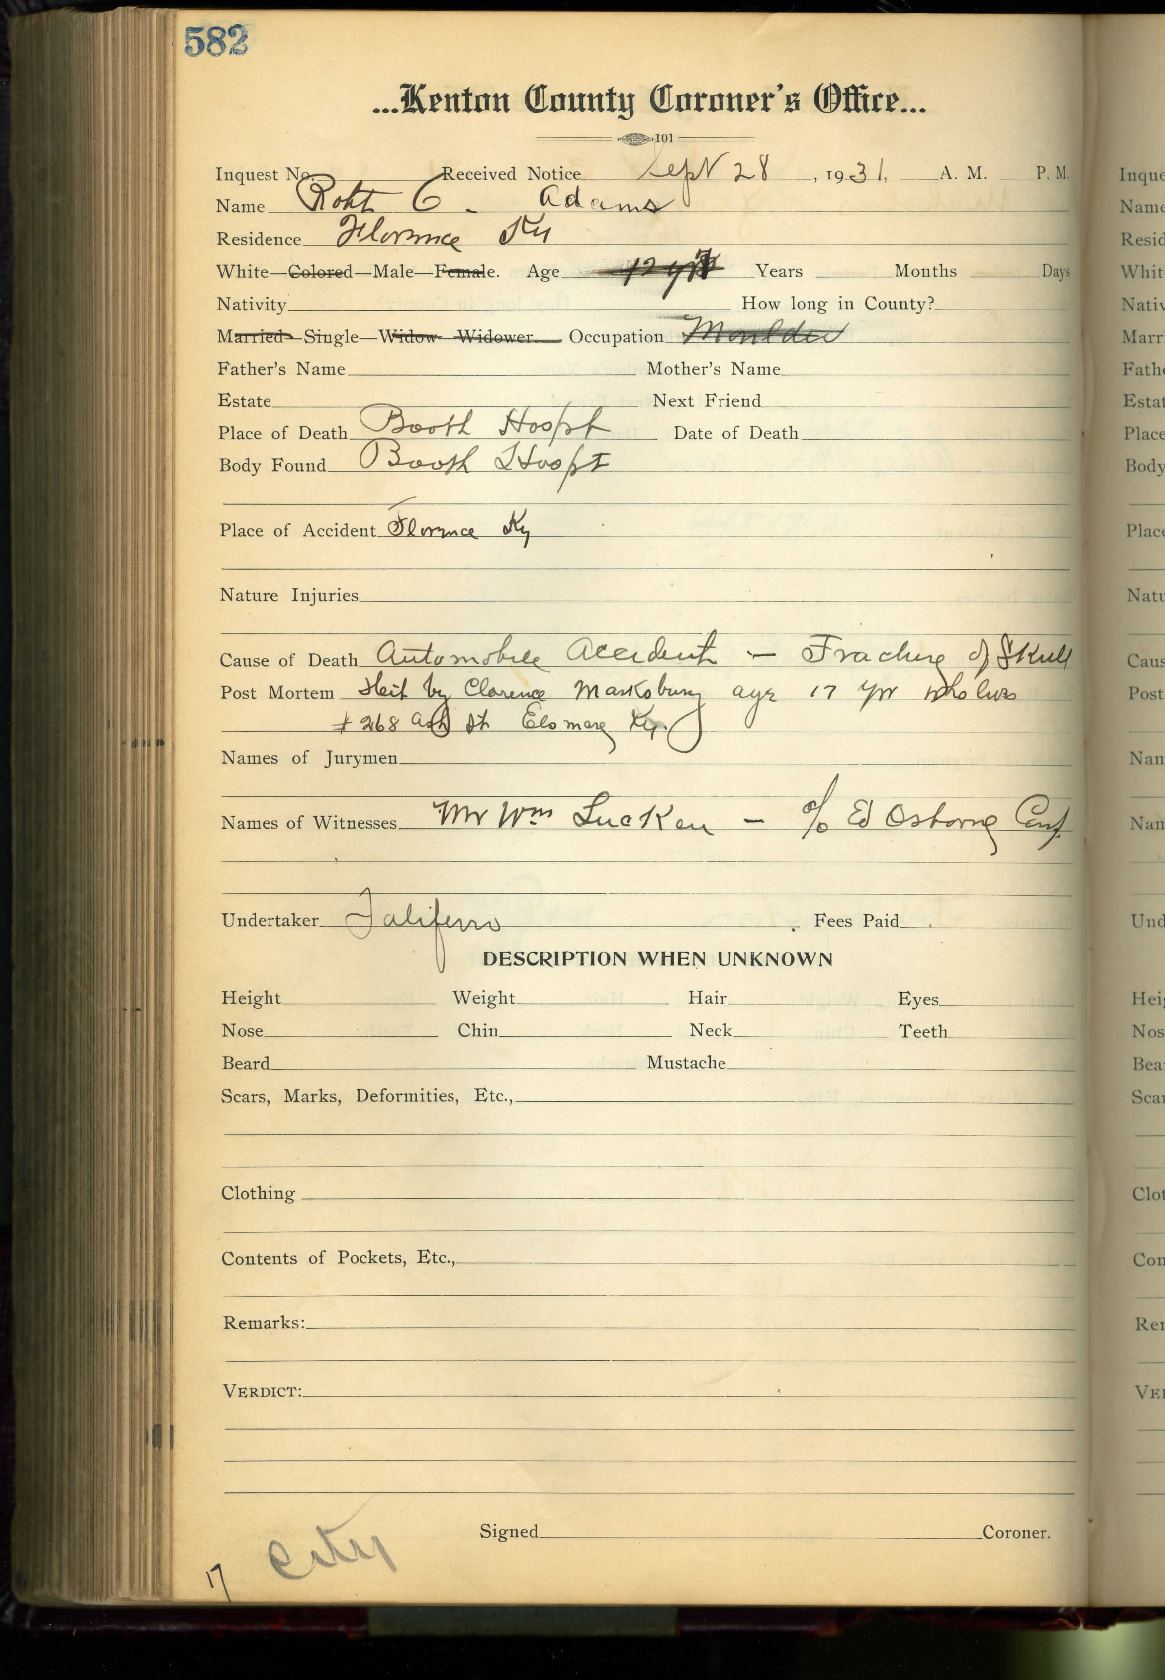 582
...Kenton County Coroner's Office...
101
Inquest No. Received Notice Sept 28, 1931, A. M. P. M.
Name Robt C. Adams
Residence Florence Ky
White—Colored—Male—Female. Age 12 yrs Years Months Days
Nativity How long in County?
Married—Single—Widow—Widower Occupation Moulder
Father's Name Mother's Name
Estate Next Friend
Place of Death Booth Hospt Date of Death
Body Found Booth Hospt
Place of Accident Florence Ky
Nature Injuries
Cause of Death Automobile Accident — Fracture of Skull
Post Mortem Hit by Clarence Marksbury age 17 yr who lives
# 268 Ash St Elsmere Ky.
Names of Jurymen
Names of Witnesses Mr Wm Lucken — c/o Ed Osborne
Undertaker Taliferro Fees Paid
DESCRIPTION WHEN UNKNOWN
Height Weight Hair Eyes
Nose Chin Neck Teeth
Beard Mustache
Scars, Marks, Deformities, Etc.,
Clothing
Contents of Pockets, Etc.,
Remarks:
VERDICT:
Signed Coroner.
City
17
Inque
Name
Resid
Whit
Nativ
Marr
Fath
Estat
Place
Body
Place
Natu
Caus
Post
Nan
Nan
Und
Hei
Nos
Bea
Scar
Clot
Con
Rer
VE